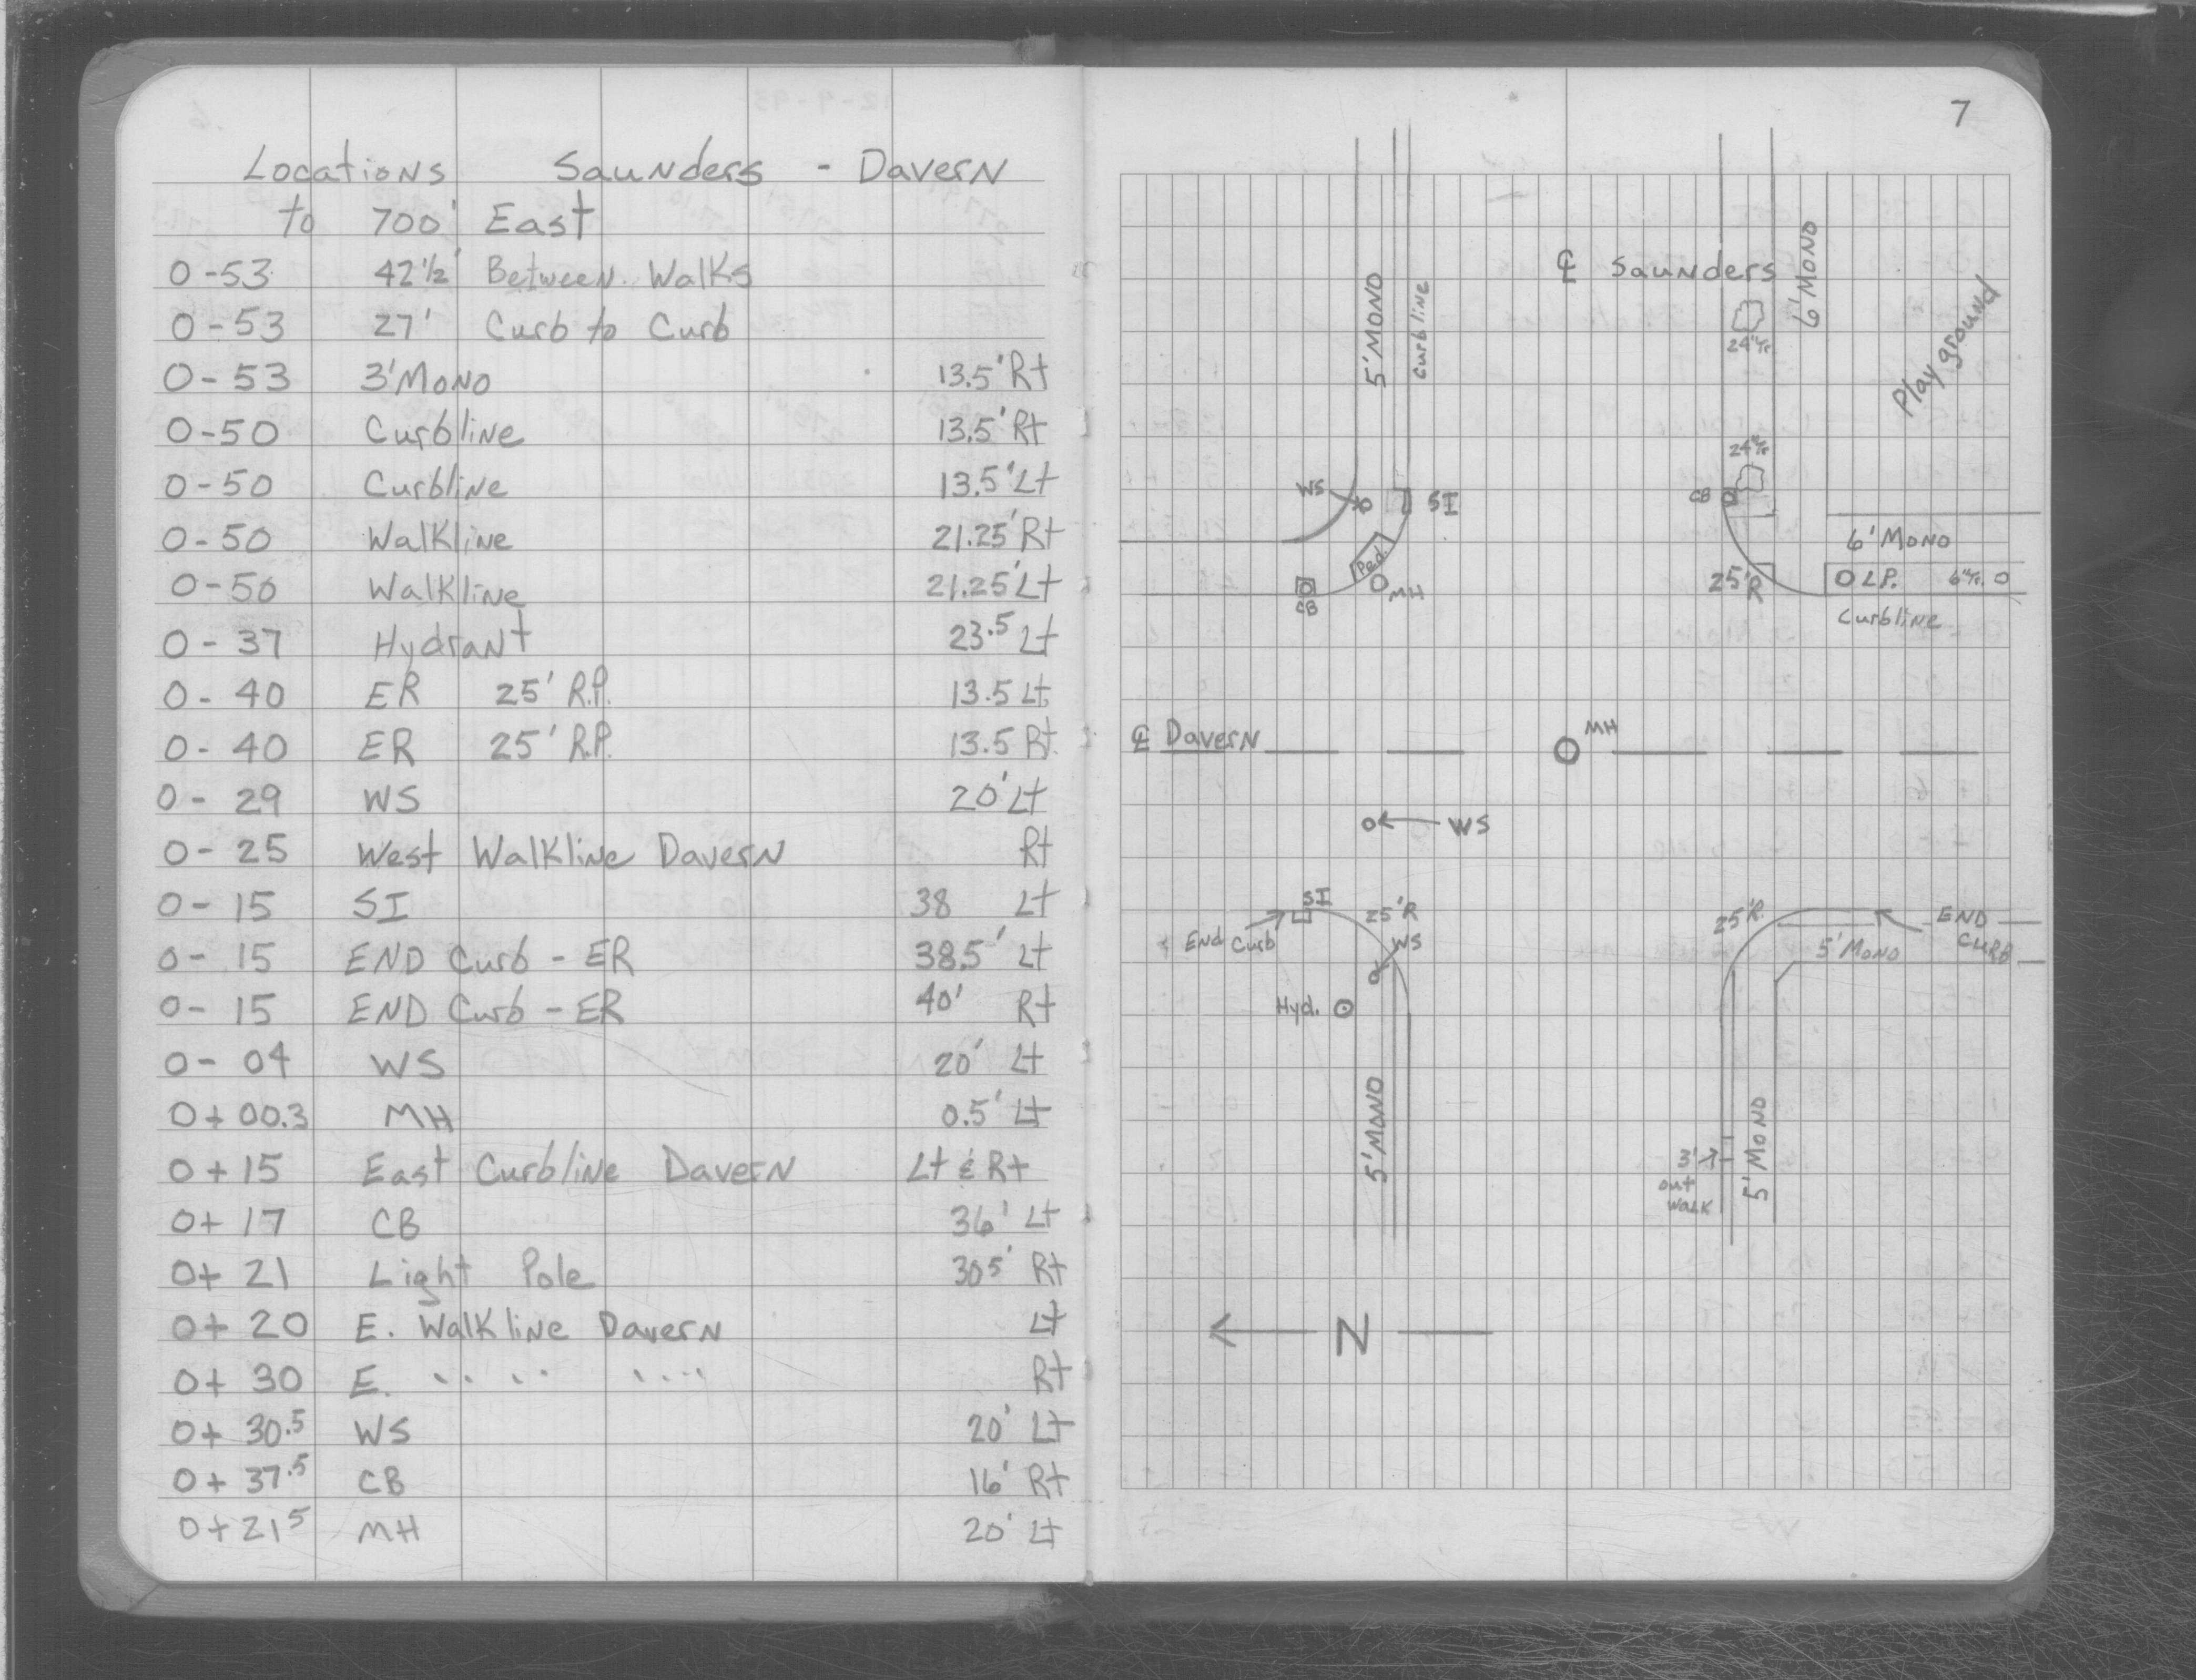 Locations Saunders - Davern
to 700' East
0-53 42 1/2' Between Walks
0-53 27' Curb to Curb
0-53 3' Mono 13.5' Rt
0-50 Curbline 13.5' Rt
0-50 Curbline 13.5' Lt
0-50 Walkline 21.25' Rt
0-50 Walkline 21.25' Lt
0-37 Hydrant 23.5 Lt
0-40 ER 25' R.P. 13.5 Lt
0-40 ER 25' R.P. 13.5 Rt
0-29 WS 20' Lt
0-25 West Walkline Davern Rt
0-15 SI 38 Lt
0-15 END Curb - ER 38.5' Lt
0-15 END Curb - ER 40' Rt
0-04 WS 20' Lt
0+00.3 MH 0.5' Lt
0+15 East Curbline Davern Lt & Rt
0+17 CB 36' Lt
0+21 Light Pole 30.5' Rt
0+20 E. Walkline Davern Lt
0+30 E. " " " Rt
0+30.5 WS 20' Lt
0+37.5 CB 16' Rt
0+21.5 MH 20' Lt
7
5' MONO
Curbline
℄ Saunders
6' MONO
24" Tr
Playground
24" Tr
WS
SI
CB
Ped.
MH
CB
6' MONO
25' R
O L.P. 6" Tr. O
Curbline
℄ Davern
MH
WS
SI
25' R
End Curb
WS
Hyd.
5' MONO
25' R.
END
CURB
5' MONO
3'
out
WALK
5' MONO
N